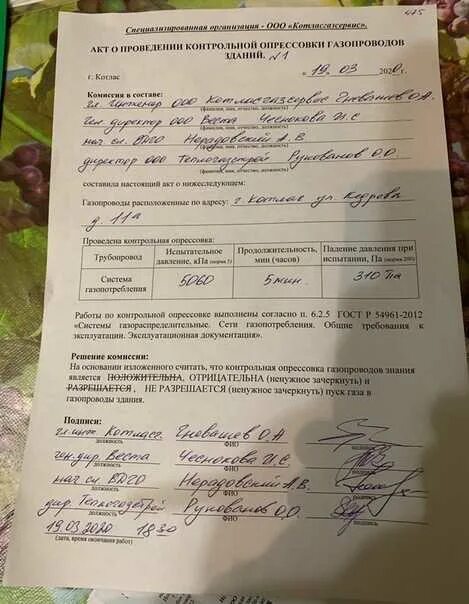 475
Специализированная организация - ООО «Котласгазсервис».
АКТ О ПРОВЕДЕНИИ КОНТРОЛЬНОЙ ОПРЕССОВКИ ГАЗОПРОВОДОВ
ЗДАНИЙ. №1
г. Котлас
« 19. 03 2020г.
Комиссия в составе:
гл. инженер ООО Котласгазсервис Гневашев О.А.
(фамилия, имя, отчество, должность)
ген. директор ООО Веста Чеснокова И.С
(фамилия, имя, отчество, должность)
нач сл ВДГО Нерадовский А.В
(фамилия, имя, отчество, должность)
директор ООО Теплогазстрой Рунованов О.О.
(фамилия, имя, отчество, должность)
составила настоящий акт о нижеследующем:
Газопроводы расположенные по адресу: г. Котлас ул. Кедрова
д. 11а
Проведена контрольная опрессовка:
Трубопровод Испытательное давление, кПа (норма 5) Продолжительность, мин (часов) Падение давления при испытании, Па (норма 200)
Система газопотребления 5060 5 мин. 310 Па
Работы по контрольной опрессовке выполнены согласно п. 6.2.5 ГОСТ Р 54961-2012
«Системы газораспределительные. Сети газопотребления. Общие требования к
эксплуатации. Эксплуатационная документация».
Решение комиссии:
На основании изложенного считать, что контрольная опрессовка газопроводов здания
является ПОЛОЖИТЕЛЬНА, ОТРИЦАТЕЛЬНА (ненужное зачеркнуть) и
РАЗРЕШАЕТСЯ , НЕ РАЗРЕШАЕТСЯ (ненужное зачеркнуть) пуск газа в
газопроводы здания.
Подписи:
гл. инж Котласг. Гневашев О.А
должность ФИО подпись
ген. дир. Веста Чеснокова И.С.
должность ФИО
нач сл. ВДГО Нерадовский А.В.
должность ФИО
дир. Теплогазстрой Рунованов О.О.
должность ФИО подпись
19.03.2020 18:30
(дата, время окончания работ)